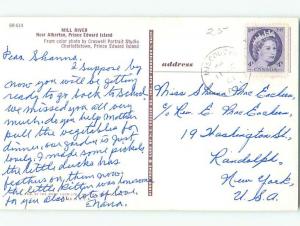 SP-514
MILL RIVER
Near Alberton, Prince Edward Island
From color photo by Craswell Portrait Studio
Charlottetown, Prince Edward Island
25
address
CANADA
Dear Shanna.
I suppose by
now you will be getting
ready to go back to School
we missed you all very
much. do you help Mother
pull the vegetables for
dinner, our garden is just
lovely. I made some pickels
the little ducks has
feathers on, them now,
the little kitten was lonesome
to you also. lots of love.
Nana.
Miss Shanna Mac Eachern
c/o Rev. E. Mac Eachern
19 Washington St,
Randolph
New York,
U.S.A.